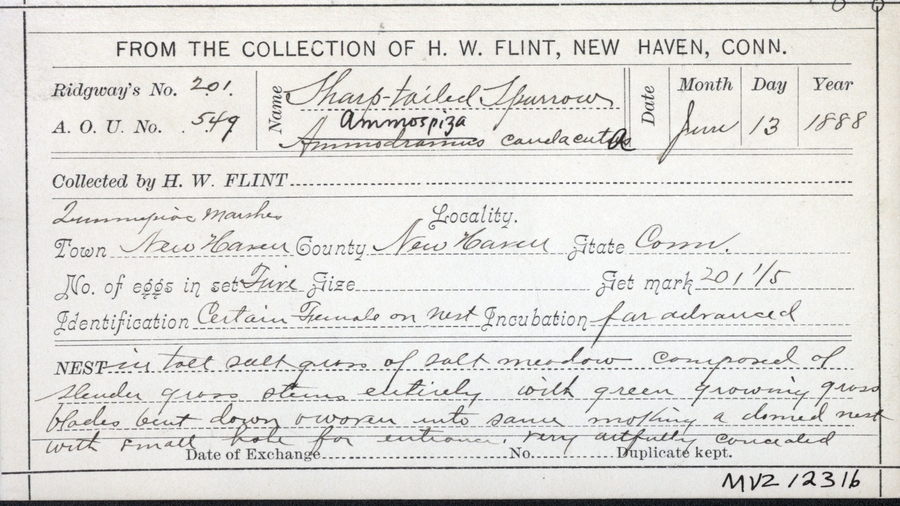 FROM THE COLLECTION OF H. W. FLINT, NEW HAVEN, CONN.
Ridgway's No. 201. Name Sharp-tailed Sparrow Date Month Day Year
A. O. U. No. 549 Ammospiza June 13 1888
Ammodramus caudacuta
Collected by H. W. FLINT
Quinnipiac Marshes Locality.
Town New Haven County New Haven State Conn.
No. of eggs in set Five Size Set mark 201 1/5
Identification Certain Female on nest Incubation far advanced
NEST in tall salt grass of salt meadow composed of
slender grass stems entirely with green growing grass
blades bent down & woven into same making a domed nest
with small hole for entrance. very artfully concealed
Date of Exchange No. Duplicate kept.
MVZ 12316